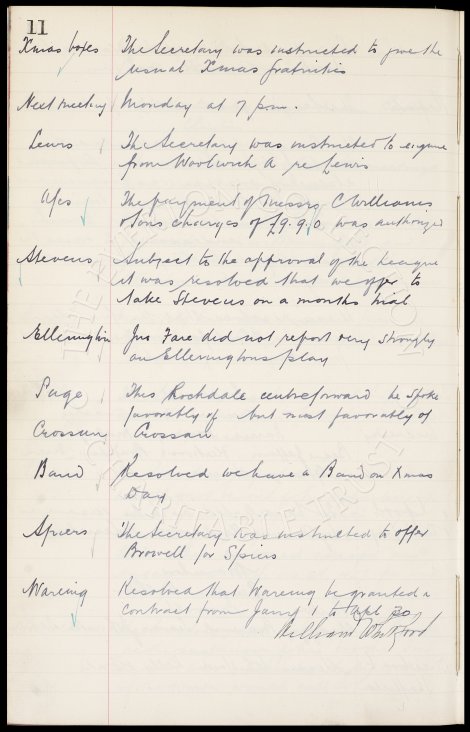 11
Xmas boxes The Secretary was instructed to give the
usual Xmas gratuities
Next meeting Monday at 7 p.m.
Lewis The Secretary was instructed to enquire
from Woolwich A re Lewis
A/cs The payment of Messrs C Williams
& Sons charges of £9.9.0 was authorized
Stevens Subject to the approval of the League
it was resolved that we offer to
take Stevens on a months trial
Ellerington Jno Fare did not report very strongly
on Elleringtons play
Page This Rockdale centreforward he spoke
favorably of but most favorably of
Crossan Crossan
Band Resolved we have a Band on Xmas
Day
Spiers The Secretary was instructed to offer
Browell for Spiers
Wareing Resolved that Wareing be granted a
contract from Jany 1 to Apl 30
William